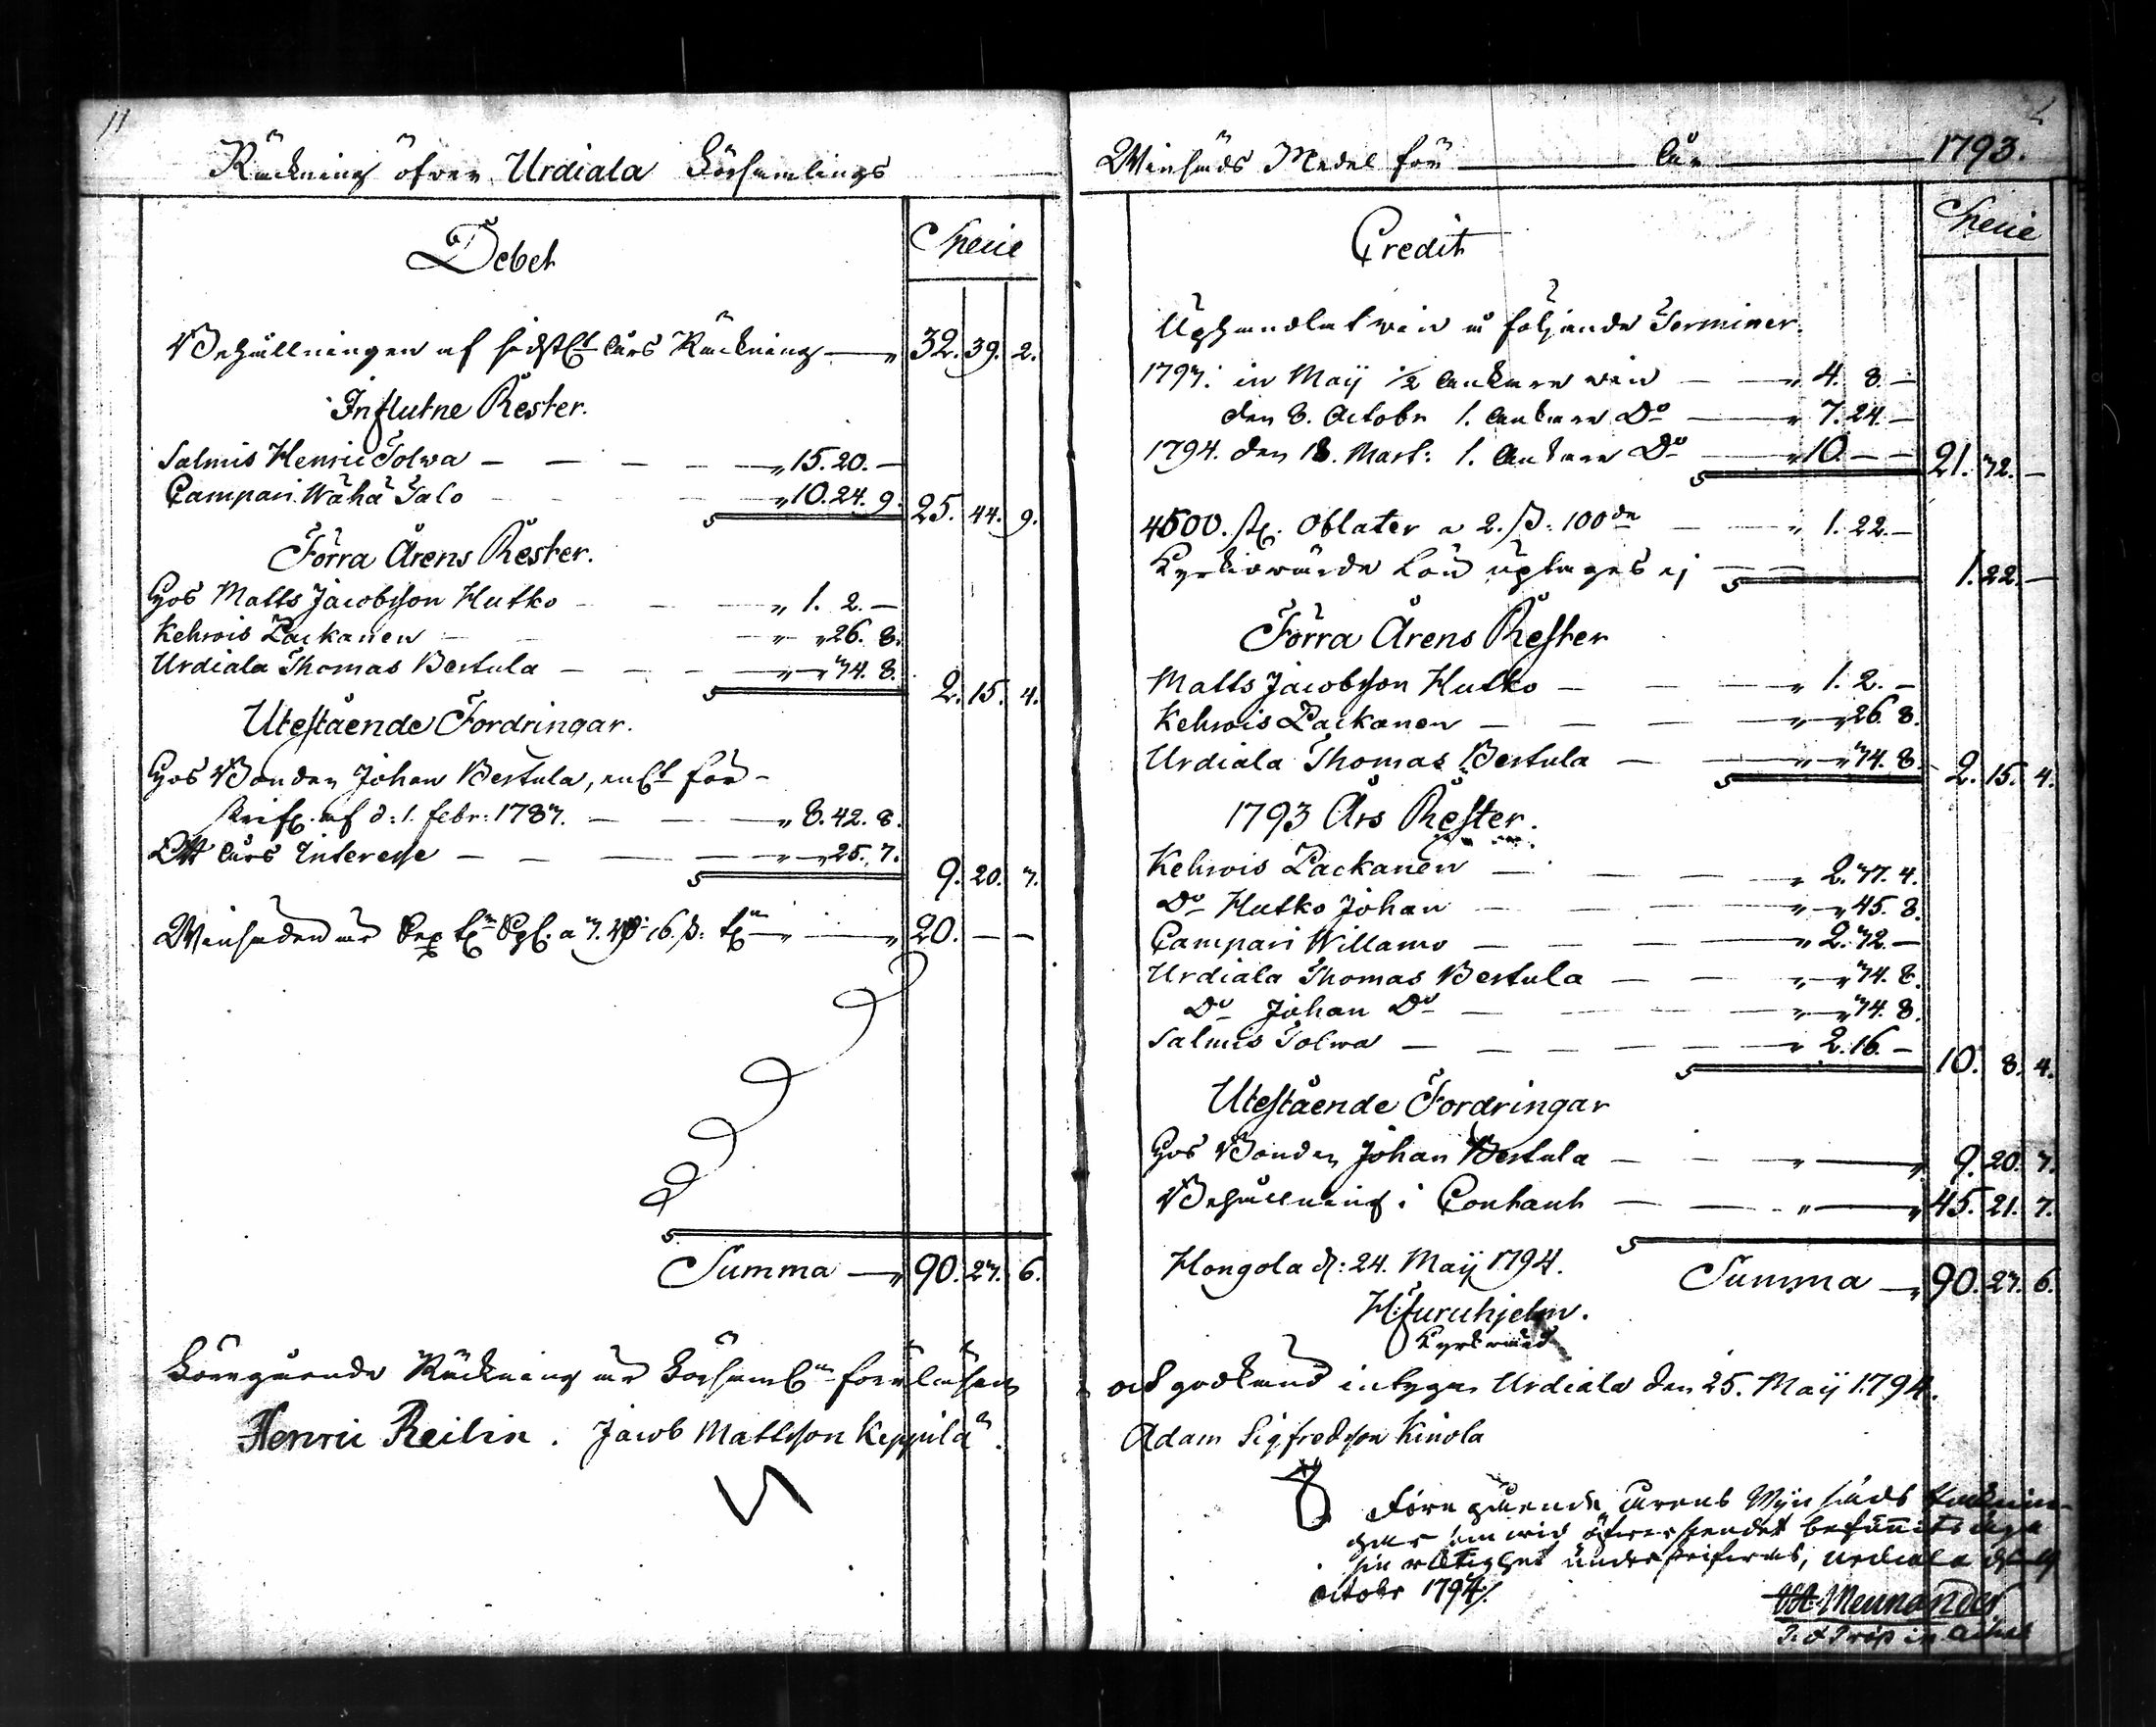 11
Räckning öfver Urdiala Församlings
Debet
Specie
Behållningen af sidstl. års Räckning — " 32. 39. 2.
Influtne Rester.
Salmis Henric Tolwa — — — — " 15. 20. —
Campari Wähä Talo — — — " 10. 24. 9. 25. 44. 9.
Förra Årens Rester.
Hos Matts Jacobsson Hutko — — " 1. 2. —
Kehrois Packanen — — " " 26. 8.
Urdiala Thomas Bertula — — — " " 74. 8. 2. 15. 4.
Utestående Fordringar.
Hos Bonden Johan Bertula, enl. för-
skrifn. af d: 1. febr: 1787. — — " 8. 42. 8.
Ett års Interesse — — — " " 25. 7. 9. 20. 7.
Winsäden är 16 ß: — " 20. — —
Summa — " 90. 27. 6.
Föregående Räckning är Församl. föreläsen
Henric Reilin. Jacob Mattsson Keppilä.
Winsäds Medel för — år — 1793.
Credit
Specie
Uphandlat win i följande Terminer.
1793. in Maij 1/2 Ankare win — " 4. 8. —
den 8. Octobr 1. Ankare Do — " 7. 24. —
1794. den 18. Mart: 1. Ankare Do — " 10. — — 21. 32. —
4500. st. Oblater a 2. ß: 100de — " 1. 22. —
Kyrkiowärde Lön uptages ej — — 1. 22. —
Förra Årens Rester
Matts Jacobsson Hutko — — — " 1. 2. —
Kehrois Packanen — — — " " 26. 8.
Urdiala Thomas Bertula — — " " 74. 8. 2. 15. 4.
1793 Års Rester.
Kehrois Packanen — — — " 2. 37. 4.
Do Hutko Johan — — — " " 45. 8.
Campari Willamo — — — " 2. 32. —
Urdiala Thomas Bertula — — " " 74. 8.
Do Johan Do — — — " " 74. 8.
Salmis Tolwa — — — — " 2. 16. — 10. 8. 4.
Utestående Fordringar
Hos Bonden Johan Bertula — — " — " 9. 20. 7.
Behållning i Contant — — " — " 45. 21. 7.
Hongola d: 24. Maij 1794. Summa — " 90. 27. 6.
H: Furuhjelm.
Kyrkowärd
och godkänd intygar Urdiala den 25. Maij 1794.
Adam Sigfredsson Kinola
Föregående årens Wijnsäds Räcknin-
gar hvid öfverseendet befunnits äga
sin riktighet underskrifwes, Urdiala d.
October 1794.
Mennander
P. & Prap in Achas